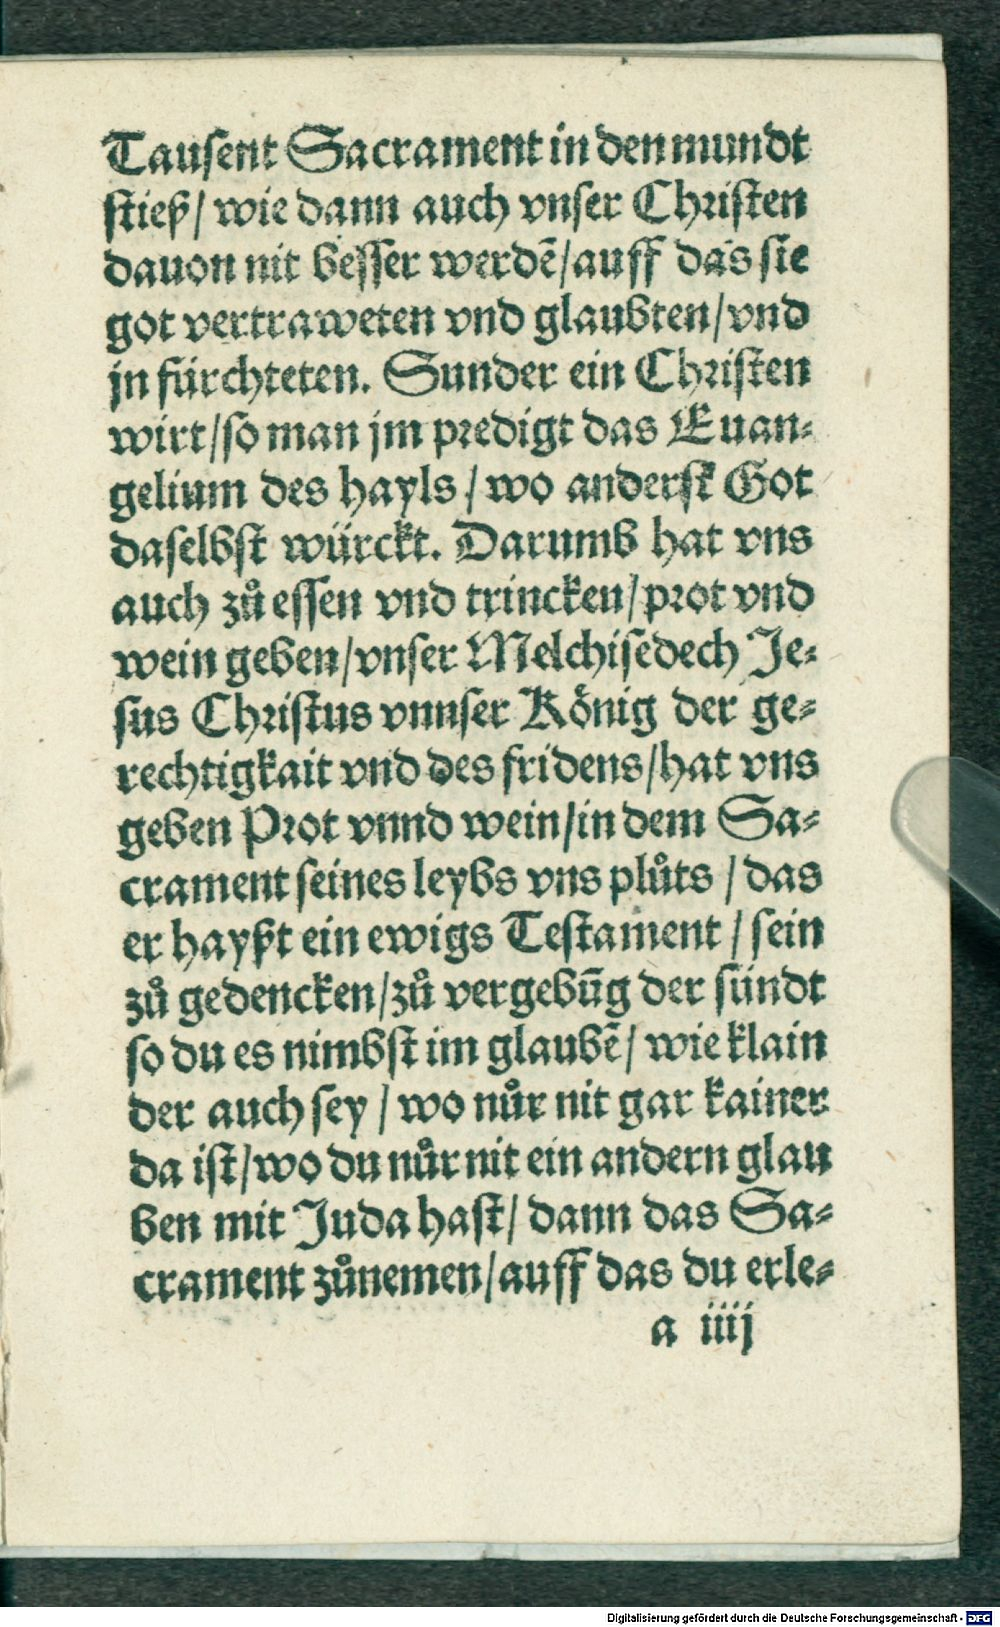 Tausent Sacrament in den mundt
stieß/ wie dann auch vnser Christen
dauon nit besser werdẽ/auff das sie
got vertraweten vnd glaubten/vnd
jn fürchteten. Sunder ein Christen
wirt/so man jm predigt das Euan⸗
gelium des hayls/ wo anderst Got
daselbst würckt. Darumb hat vns
auch zů essen vnd trincken/prot vnd
wein geben/vnser Melchisedech Je⸗
sus Christus vnnser König der ge⸗
rechtigkait vnd des fridens/hat vns
geben Prot vnnd wein/in dem Sa⸗
crament seines leybs vns plůts/das
er hayßt ein ewigs Testament/sein
zů gedencken/zů vergebũg der sündt
so du es nimbst im glaubẽ/ wie klain
der auch sey/wo nůr nit gar kainer
da ist/wo du nůr nit ein andern glau
ben mit Juda hast/ dann das Sa⸗
crament zůnemen/auff das du erle⸗
a iiij
Digitalisierung gefördert durch die Deutsche Forschungsgemeinschaft - DFG